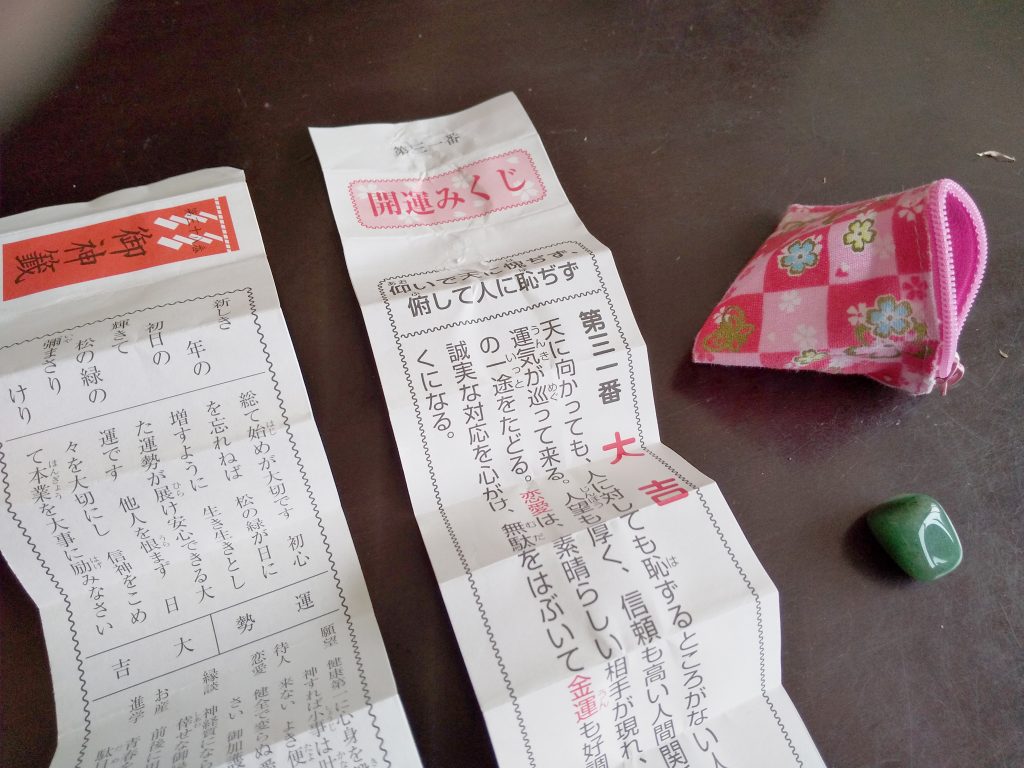 御神籤
新しき
年の
初日の
輝きて
松の緑の
彌まさり
けり
総て始めが大切です 初心
を忘れねば 松の緑が日に
増すように 生き生きとし
た運勢が展け安心できる大
運です 他人を妬まず 日
々を大切にし 信神をこめ
て本業を大事に励みなさい
運勢
大吉
願望 健康第一に心身を
神すれば小事は叶
待人 来ない よき便
恋愛 健全で変らぬ愛
さい 御加護
縁談 神経質になら
倖せな御
お産 前後に
進学
第三一番
開運みくじ
仰いで天に愧ぢず、
俯して人に恥ぢず
第三一番 大吉
天に向かっても、人に対しても恥ずるところがない人
運気が巡って来る。人望も厚く、信頼も高い人間関
の一途をたどる。恋愛は、素晴らしい相手が現れ、
誠実な対応を心がけ、無駄をはぶいて金運も好調
くになる。